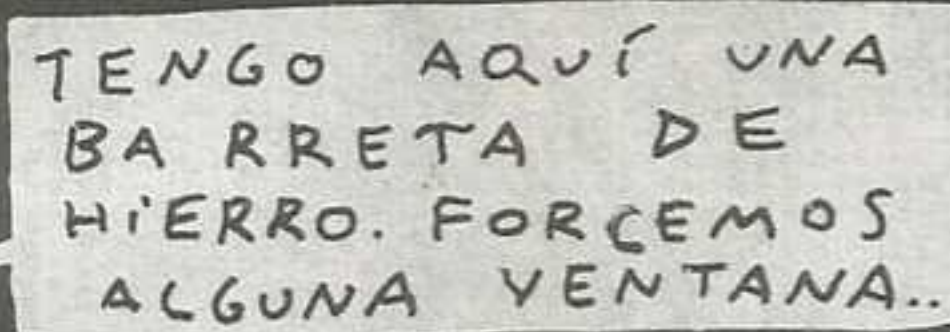 TENGO AQUÍ UNA
BARRETA DE
HIERRO. FORCEMOS
ALGUNA VENTANA..